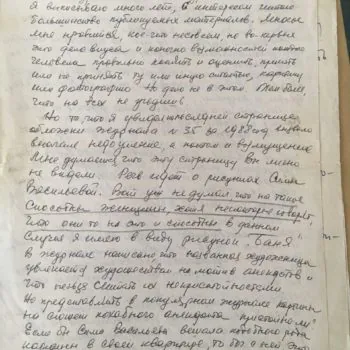 Я выписываю много лет, с интересом читаю
большинство публикуемых материалов. Многое
мне нравится, кое-что нет совсем, но во первых
это дело вкуса и конечно возможностей каждого
человека правильно понять и оценить, принять
или не принять ту или иную статью, картину,
или фотографию. Но дело не в этом. Тем более,
что на всех не угодишь.
Но то, что я увидела на последней странице
обложки журнала № 35 за 1988 год вызвало
вначале недоумение, а потом и возмущение.
Мне думается что эту страницу Вы лично
не видели. Речь идет о рисунках Сели
Васильевой. Вот уж не думала что на такое
способны женщины, хотя некоторые говорят,
что они-то на это и способны в данном
случае я имею в виду рисунок "Баня".
В журнале написано что названная художница
увлечена художеством на мотив анекдотов и
что нельзя считать их непристойностями
Но представлять в популярном журнале картины
на сюжет похабного анекдота "пристойно"?
Если бы Селя Васильева вешала подобного рода
картины в своей квартире, то бы с ней. Это